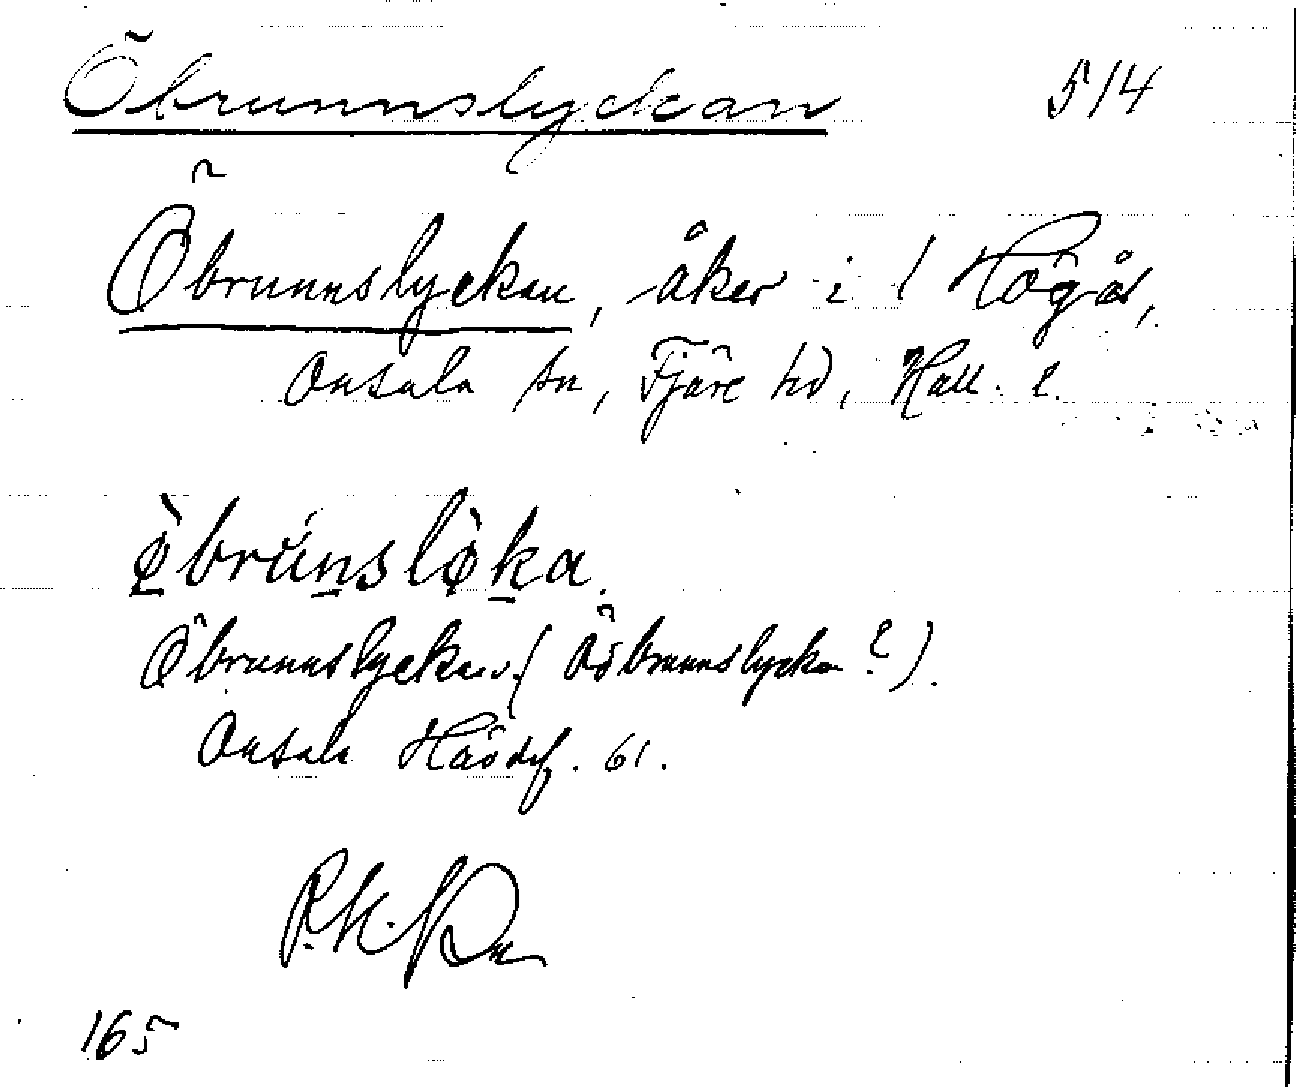 Öbrunnslyckan 514
Öbrunnslyckan, åker i 1 Högås,
Onsala sn, Fjäre hd, Hall. l.
ȯ̱̀brúṉslø̀ḵa.
Öbrunnslyckan (Ösbrunnslyckan?).
Onsala 61.
165